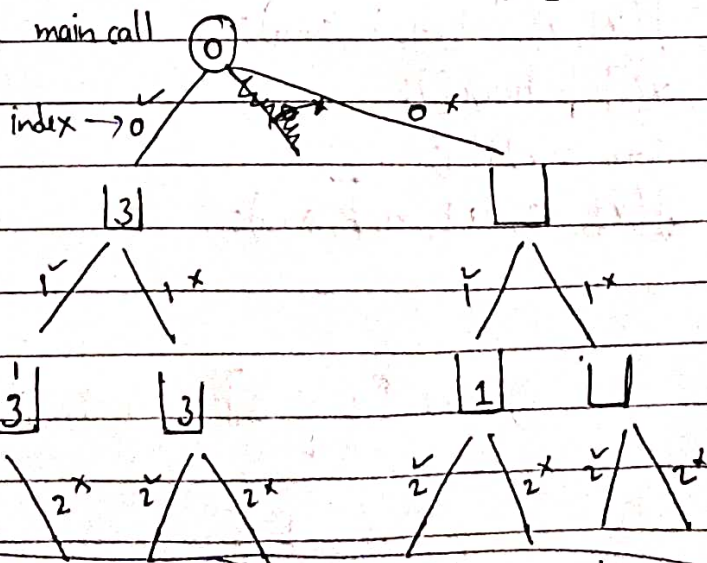 main call
0
index → 0 ✓ 0 ×
3
1 ✓ 1 × 1 ✓ 1 ×
1
3 3 1
2 × 2 ✓ 2 × 2 ✓ 2 × 2 ✓ 2 ×